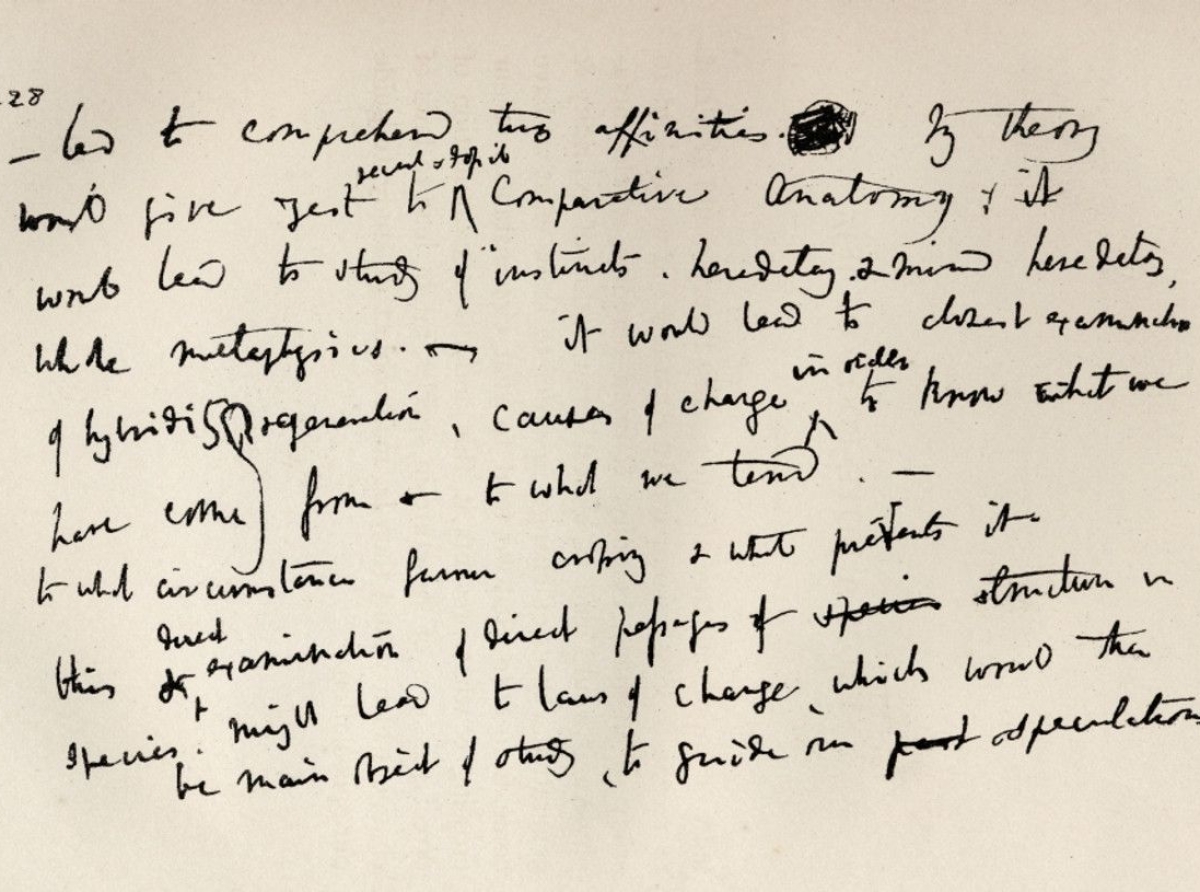 228
– led to comprehend true affinities. My theory
would give zest to recent & Fossil Comparative Anatomy, & it
would lead to study of instincts, heredetary. & mind heredetary,
whole metaphysics. — it would lead to closest examination
of hybridity regeneration, causes of change in order to know what we
have come from & to what we tend. —
to what circumstances favour crossing & what prevents it–
this & direct examination of direct passages of species structure in
species, might lead to laws of change, which would then
be main object of study, to guide our past speculations